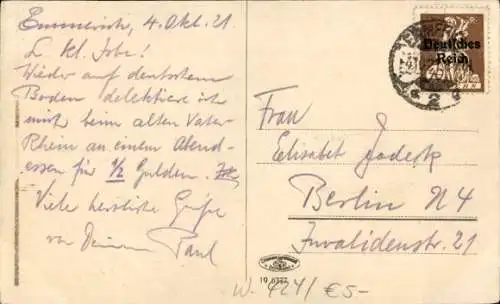 Emmerich, 4. Okt. 21.
L. kl. Tobe!
Wieder auf deutschem
Boden delektiere ich
mich beim alten Vater
Rhein an einem Abend-
essen für 1/2 Gulden.
Viele herzliche Grüße
von Deinem Paul
Deutsches
Reich
2
Frau
Elisabet Godeck
Berlin N 4
Invalidenstr. 21
19 6377
W. 424/ €5-